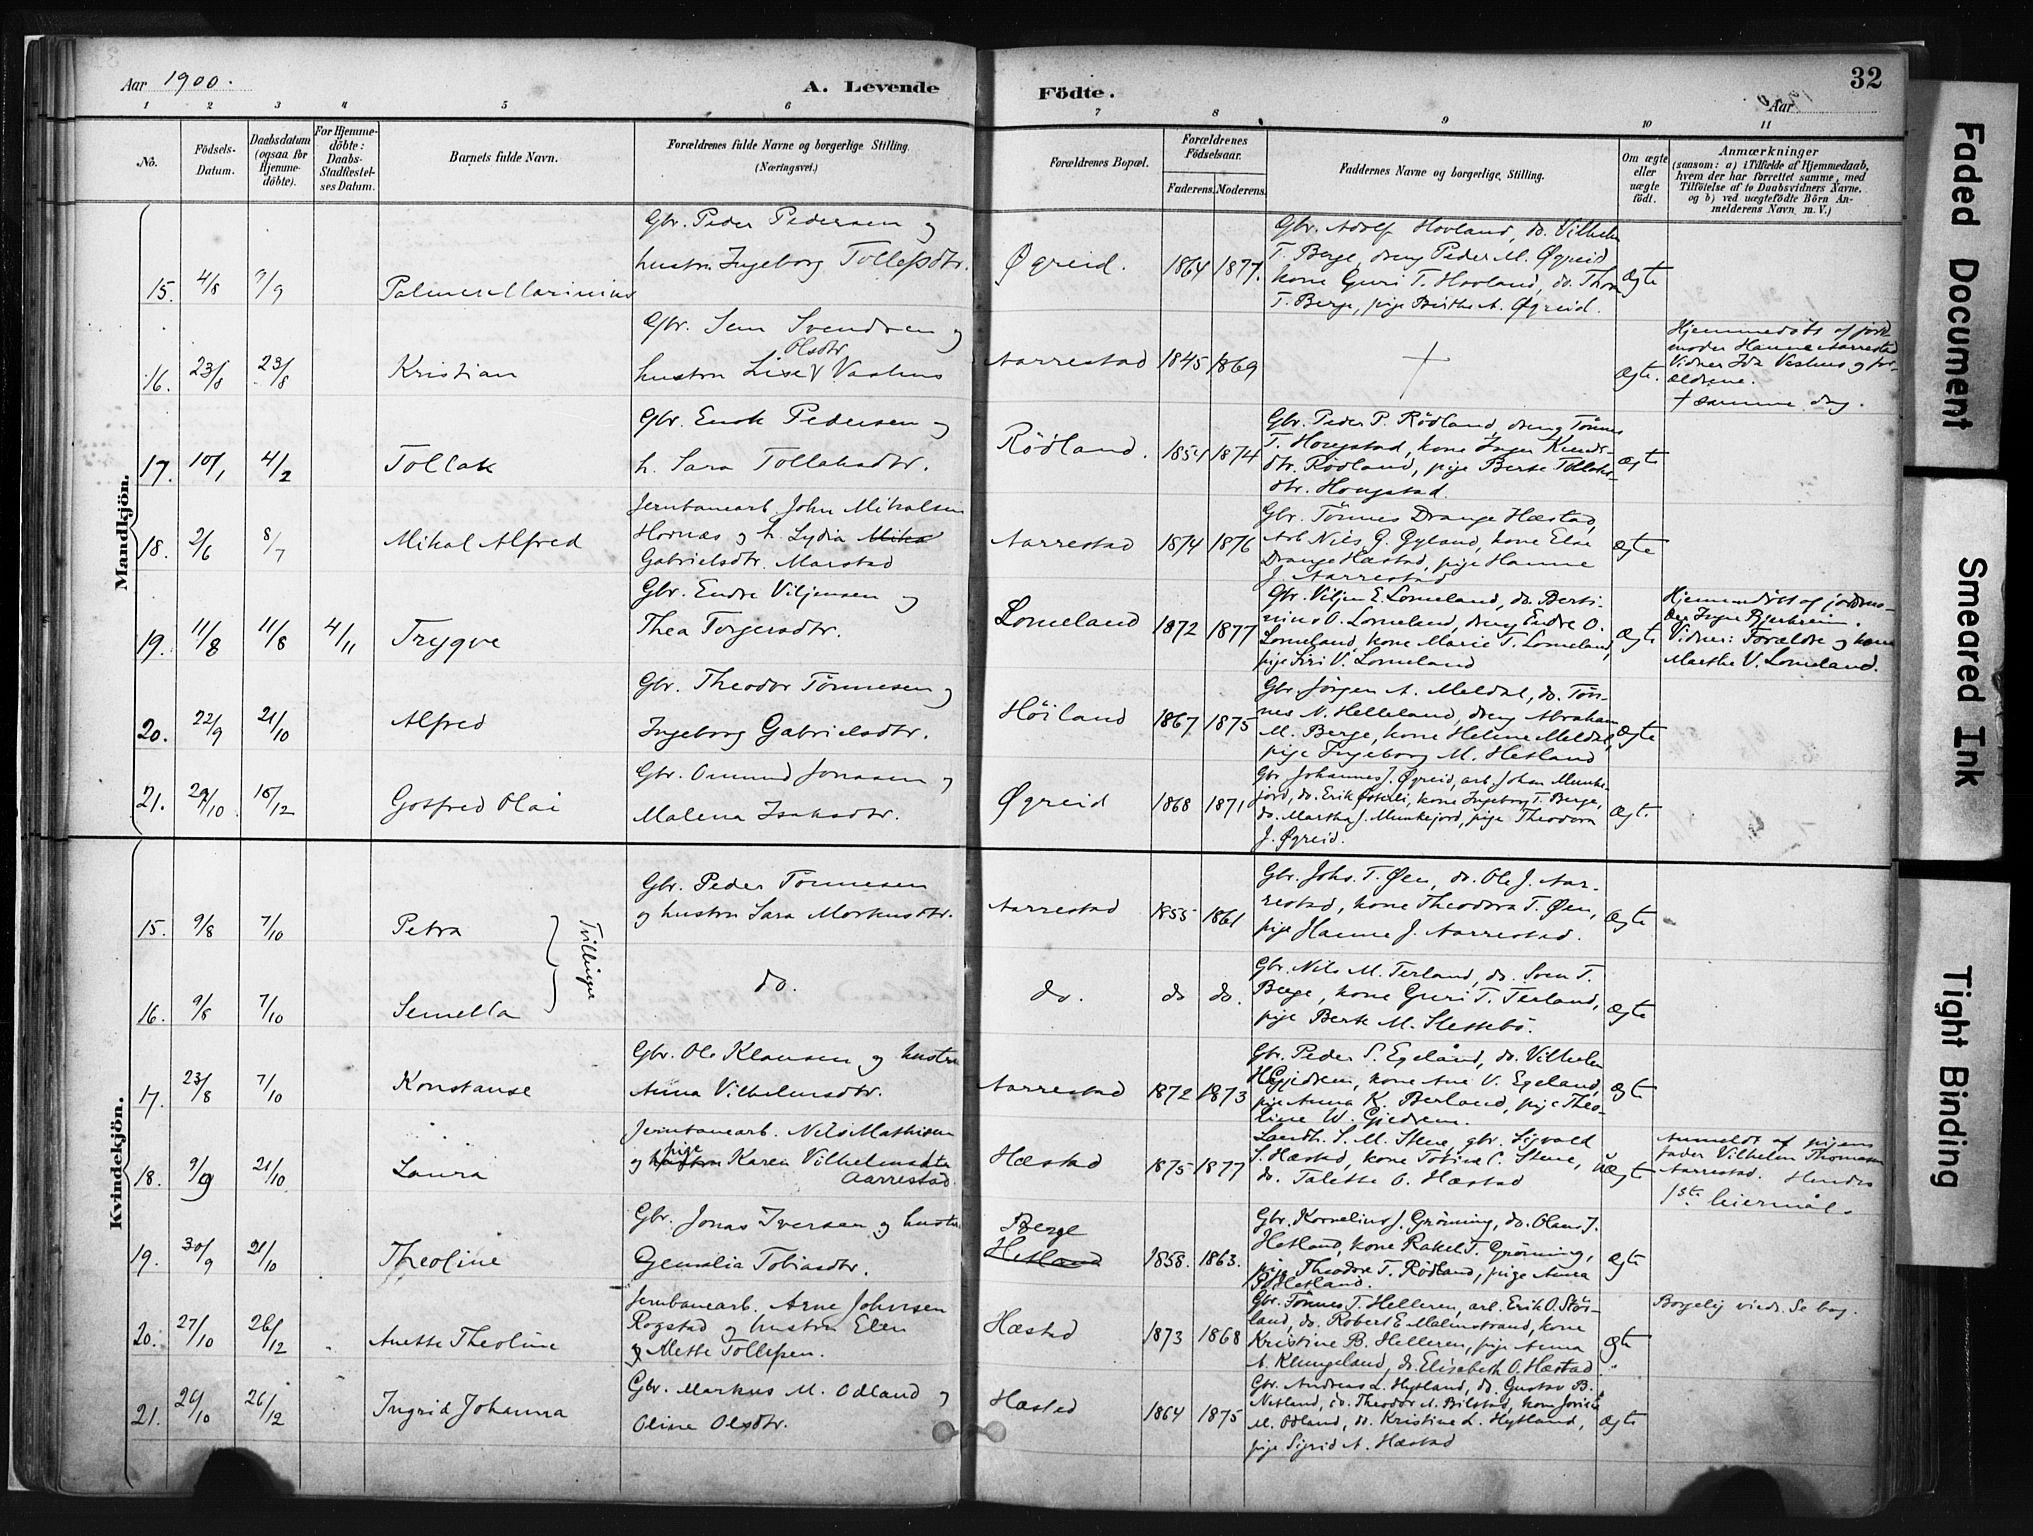 Aar 1900.
A. Levende
Födte.
Aar
32
1 2 3 4 5 6 7 8 9 10 11
No.
Födsels-Datum.
Daabsdatum (ogsaa for Hjemmedöbte).
For Hjemmedöbte: Daabs-Stadfæstelses Datum.
Barnets fulde Navn.
Forældrenes fulde Navne og borgerlige Stilling. (Næringsvei.)
Forældrenes Bopæl.
Forældrenes Födselsaar.
Faderens. Moderens.
Faddernes Navne og borgerlige Stilling.
Om ægte eller uægte födt.
Anmærkninger
(saasom: a) i Tilfælde af Hjemmedaab, hvem der har forrettet samme, med Tilföielse af to Daabsvidners Navne. og b) ved uægtefödte Börn Anmelderens Navn m. V.)
Mandkjön.
15. 4/8 9/9 Palmer Marinius
Gbr. Peder Pedersen og
hustru Ingeborg Tollefsdtr.
Øgreid. 1864 1877.
Gbr. Adolf Hovland, do. Vilhelm
T. Berge, dreng Peder M. Øgreid
kone Guri T. Hovland, do. Thora
T. Berge, pige Birthe A. Øgreid.
Ægte
16. 23/8 23/8 Kristian
Gbr. Sem Svendsen og
Olsdtr.
hustru Lise V Vashus
Aarrestad 1845 1869
Ægte.
Hjemmedøbt af jord
moder Hanne Aarrestad
Vidner Ida Vashus og for-
ældrene.
† samme dag.
17. 10/1 4/2 Tollak
Gbr. Enok Pedersen og
h. Sara Tollaksdtr.
Rödland. 1854 1874
Gbr. Peder P. Rödland, dreng Tönnes
T. Hougstad, kone Inger Knuds-
dtr. Rödland, pige Berte Tollaks-
dtr. Hougstad.
Ægte
18. 2/6 8/7 Mikal Alfred
Jernbanearb. John Mikalsen
Hornæs og h. Lydia Mika
Gabrielsdtr. Marstad
Aarrestad 1874 1876
Gbr. Tönnes Drange Hæstad,
Arb. Nils G. Gyland, kone Else
Drange Hæstad, pige Hanne
J. Aarrestad
Ægte
19. 11/8 11/8 4/11 Trygve
Gbr. Endre Viljemsen og
Thea Torgersdtr.
Lomeland 1872 1877
Gbr. Viljem E. Lomeland, do. Berti-
nius O. Lomeland, dreng Endre O.
Lomeland, kone Marie T. Lomeland,
pige Siri V. Lomeland
Ægte
Hjemmedöbt af jordmo-
der Inger Bjerkreim.
Vidner: Forældre og kone
Marthe V. Lomeland.
20. 22/9 21/10 Alfred
Gbr. Theodor Tönnesen og
Ingeborg Gabrielsdtr.
Höiland 1867 1875
Gbr. Jörgen A. Meldal, do. Tön-
nes N. Helleland, dreng Abraham
M. Berge, kone Helene Meldal,
pige Ingeborg M. Hetland
Ægte
21. 29/10 16/12 Gotfred Olai
Gbr. Omund Jonasen og
Malena Isaksdtr.
Øgreid 1868 1871
Gbr. Johannes J. Øgreid, arb. Johan Munke-
jord, do. Erik Østebi, kone Ingeborg T. Berge,
do. Martha J. Munkejord, pige Theodora
J. Øgreid.
Ægt.
Kvindekjön.
15. 9/8 7/10 Petra
Tvillinger
Gbr. Peder Tönnesen
og hustru Sara Markusdtr.
Aarrestad 1855 1861
Gbr. Johs. T. Øen, do. Ole J. Aar-
restad, kone Theodora T. Øen,
pige Hanne J. Aarrestad.
Ægte
16. 9/8 7/10 Semella
do.
do. do do.
Gbr. Nils M. Terland, do. Sven T.
Berge, kone Guri T. Terland,
pige Berte M. Slettebö.
Ægte
17. 23/8 7/10 Konstanse
Gbr. Ole Klausen og hustru
Anna Vilhelmsdtr.
Aarrestad 1872 1873
Gbr. Peder S. Egeland, do. Vilhelm
H. Gjedrem, kone Ane V. Egeland,
pige Anna K. Berland, pige Theo-
line W. Gjedrem.
Ægte
18. 9/9 21/10 Laura
Jernbanearb. Nils Mathisen
pige
og hustru Karen Vilhelmsdtr.
Aarrestad.
Hæstad 1875 1877
Landh. S. M. Stene, gbr. Sigvald
S. Hæstad, kone Tobine C. Stene,
do. Talette O. Hæstad
uægte
Anmeldt af pigens
fader Vilhelm Thomasen
Aarrestad. Hendes
1ste leiermål.
19. 30/9 21/10 Theoline
Gbr. Jonas Iversen og hustru
Gemalia Tobiasdtr.
Berge
Hetland
1858. 1863.
Gbr. Kornelius J. Gröning, do. Olaus J.
Hetland, kone Rakel T. Gröning,
pige Theodore T. Rödland, pige Anna
B. Hetland.
Ægte
20. 27/10 26/12 Anette Theoline
Jernbanearb. Arne Johnsen
Rogstad og hustru Elen
g Mette Tollefsen.
Hæstad 1873 1868
Gbr. Tönnes T. Helleren, arb. Erik O. Stös-
land, do. Robert E. Malmstrand, kone
Kristine B. Helleren, pige Anna
A. Klungeland, do. Elisabeth O. Hæstad
Ægte
Borgelig viede. Se bag.
21. 26/10 26/12 Ingrid Johanna
Gbr. Markus M. Odland og
Oline Olsdtr.
Hæstad 1864 1875
Gbr. Andreas L. Hytland, do. Gustav B.
Netland, do. Theodor A. Bilstad, kone Jorine
M. Odland, do. Kristine L. Hytland,
pige Sigrid A. Hæstad
Ægte
Faded Document
Smeared Ink
Tight Binding